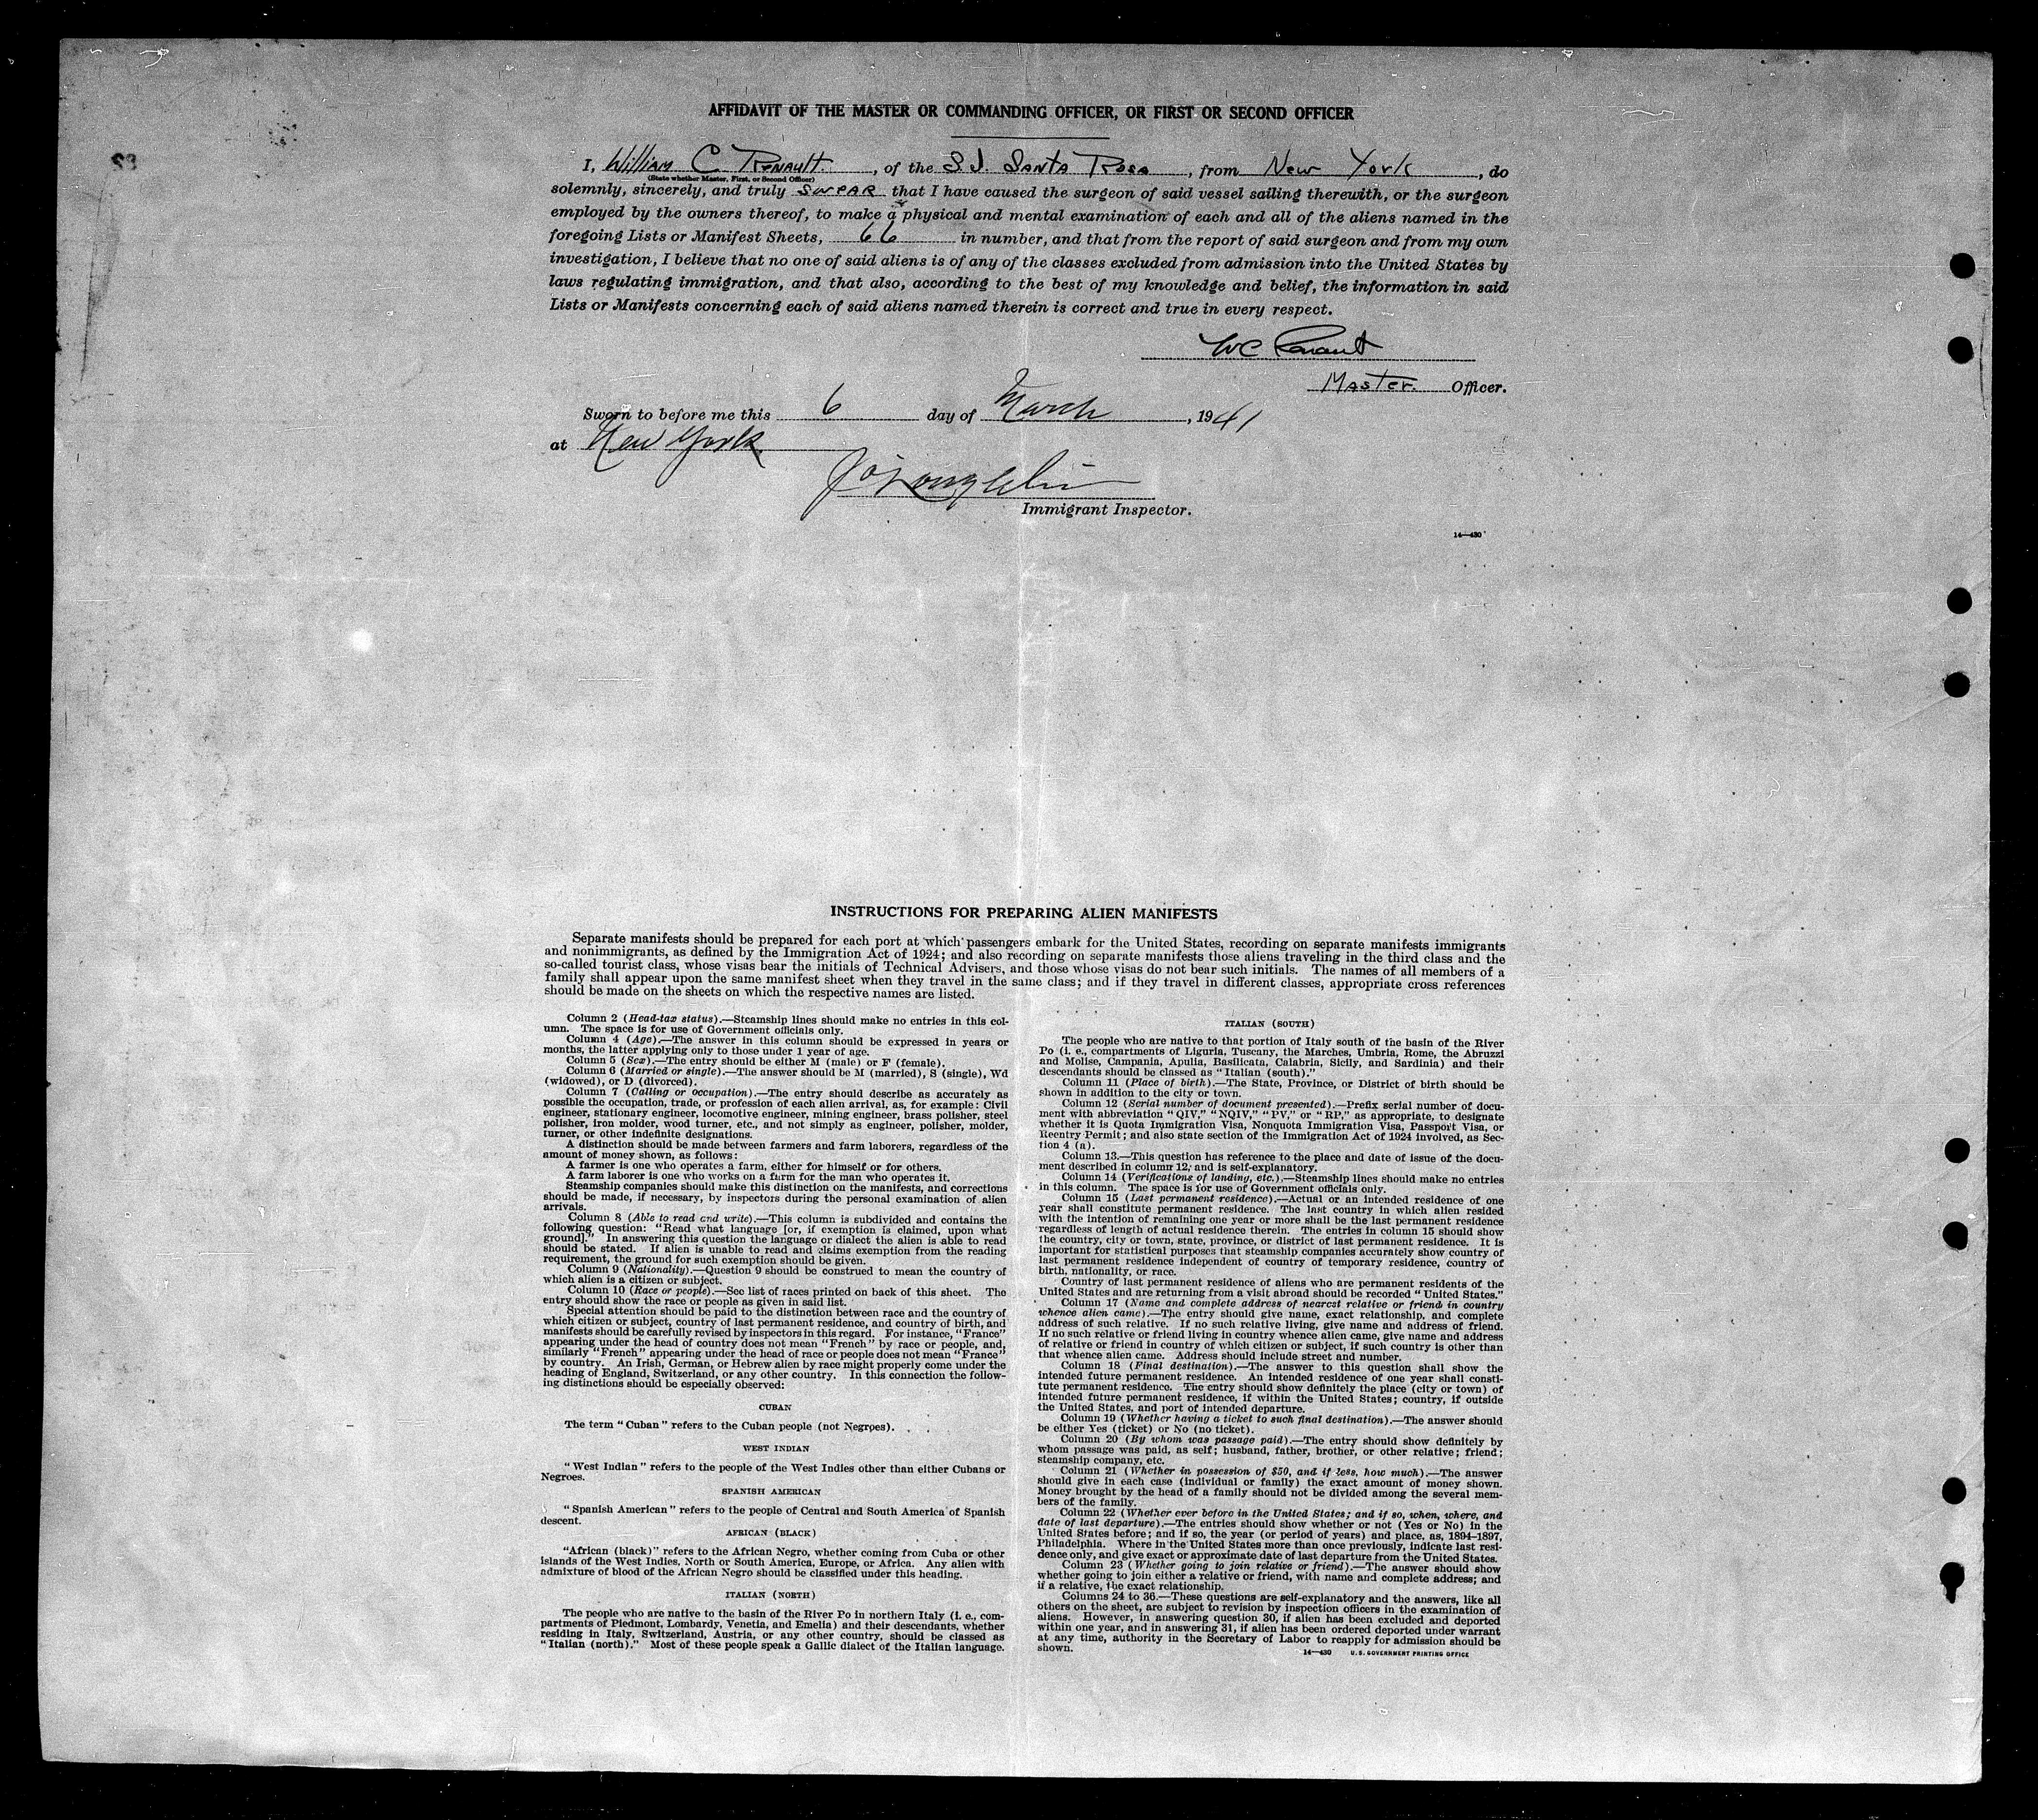 AFFIDAVIT OF THE MASTER OR COMMANDING OFFICER, OR FIRST OR SECOND OFFICER
I, William C Renault, of the S.S. Santa Rosa, from New York, do
(State whether Master, First, or Second Officer)
solemnly, sincerely, and truly swear that I have caused the surgeon of said vessel sailing therewith, or the surgeon
employed by the owners thereof, to make a physical and mental examination of each and all of the aliens named in the
foregoing Lists or Manifest Sheets, 66 in number, and that from the report of said surgeon and from my own
investigation, I believe that no one of said aliens is of any of the classes excluded from admission into the United States by
laws regulating immigration, and that also, according to the best of my knowledge and belief, the information in said
Lists or Manifests concerning each of said aliens named therein is correct and true in every respect.
WC Renault
Master. Officer.
Sworn to before me this 6 day of March, 1941
at New York
Immigrant Inspector.
14—430
INSTRUCTIONS FOR PREPARING ALIEN MANIFESTS
Separate manifests should be prepared for each port at which passengers embark for the United States, recording on separate manifests immigrants
and nonimmigrants, as defined by the Immigration Act of 1924; and also recording on separate manifests those aliens traveling in the third class and the
so-called tourist class, whose visas bear the initials of Technical Advisers, and those whose visas do not bear such initials. The names of all members of a
family shall appear upon the same manifest sheet when they travel in the same class; and if they travel in different classes, appropriate cross references
should be made on the sheets on which the respective names are listed.
Column 2 (Head-tax status).—Steamship lines should make no entries in this col-
umn. The space is for use of Government officials only.
Column 4 (Age).—The answer in this column should be expressed in years or
months, the latter applying only to those under 1 year of age.
Column 5 (Sex).—The entry should be either M (male) or F (female).
Column 6 (Married or single).—The answer should be M (married), S (single), Wd
(widowed), or D (divorced).
Column 7 (Calling or occupation).—The entry should describe as accurately as
possible the occupation, trade, or profession of each alien arrival, as, for example: Civil
engineer, stationary engineer, locomotive engineer, mining engineer, brass polisher, steel
polisher, iron molder, wood turner, etc., and not simply as engineer, polisher, molder,
turner, or other indefinite designations.
A distinction should be made between farmers and farm laborers, regardless of the
amount of money shown, as follows:
A farmer is one who operates a farm, either for himself or for others.
A farm laborer is one who works on a farm for the man who operates it.
Steamship companies should make this distinction on the manifests, and corrections
should be made, if necessary, by inspectors during the personal examination of alien
arrivals.
Column 8 (Able to read and write).—This column is subdivided and contains the
following question: "Read what language [or, if exemption is claimed, upon what
ground]." In answering this question the language or dialect the alien is able to read
should be stated. If alien is unable to read and claims exemption from the reading
requirement, the ground for such exemption should be given.
Column 9 (Nationality).—Question 9 should be construed to mean the country of
which alien is a citizen or subject.
Column 10 (Race or people).—See list of races printed on back of this sheet. The
entry should show the race or people as given in said list.
Special attention should be paid to the distinction between race and the country of
which citizen or subject, country of last permanent residence, and country of birth, and
manifests should be carefully revised by inspectors in this regard. For instance, "France"
appearing under the head of country does not mean "French" by race or people, and,
similarly "French" appearing under the head of race or people does not mean "France"
by country. An Irish, German, or Hebrew alien by race might properly come under the
heading of England, Switzerland, or any other country. In this connection the follow-
ing distinctions should be especially observed:
CUBAN
The term "Cuban" refers to the Cuban people (not Negroes).
WEST INDIAN
"West Indian" refers to the people of the West Indies other than either Cubans or
Negroes.
SPANISH AMERICAN
"Spanish American" refers to the people of Central and South America of Spanish
descent.
AFRICAN (BLACK)
"African (black)" refers to the African Negro, whether coming from Cuba or other
islands of the West Indies, North or South America, Europe, or Africa. Any alien with
admixture of blood of the African Negro should be classified under this heading.
ITALIAN (NORTH)
The people who are native to the basin of the River Po in northern Italy (i. e., com-
partments of Piedmont, Lombardy, Venetia, and Emelia) and their descendants, whether
residing in Italy, Switzerland, Austria, or any other country, should be classed as
"Italian (north)." Most of these people speak a Gallic dialect of the Italian language.
ITALIAN (SOUTH)
The people who are native to that portion of Italy south of the basin of the River
Po (i. e., compartments of Liguria, Tuscany, the Marches, Umbria, Rome, the Abruzzi
and Molise, Campania, Apulia, Basilicata, Calabria, Sicily, and Sardinia) and their
descendants should be classed as "Italian (south)."
Column 11 (Place of birth).—The State, Province, or District of birth should be
shown in addition to the city or town.
Column 12 (Serial number of document presented).—Prefix serial number of docu-
ment with abbreviation "QIV," "NQIV," "PV," or "RP," as appropriate, to designate
whether it is Quota Immigration Visa, Nonquota Immigration Visa, Passport Visa, or
Reentry Permit; and also state section of the Immigration Act of 1924 involved, as Sec-
tion 4 (a).
Column 13.—This question has reference to the place and date of issue of the docu-
ment described in column 12, and is self-explanatory.
Column 14 (Verifications of landing, etc.).—Steamship lines should make no entries
in this column. The space is for use of Government officials only.
Column 15 (Last permanent residence).—Actual or an intended residence of one
year shall constitute permanent residence. The last country in which alien resided
with the intention of remaining one year or more shall be the last permanent residence
regardless of length of actual residence therein. The entries in column 15 should show
the country, city or town, state, province, or district of last permanent residence. It is
important for statistical purposes that steamship companies accurately show country of
last permanent residence independent of country of temporary residence, country of
birth, nationality, or race.
Country of last permanent residence of aliens who are permanent residents of the
United States and are returning from a visit abroad should be recorded "United States."
Column 17 (Name and complete address of nearest relative or friend in country
whence alien came).—The entry should give name, exact relationship, and complete
address of such relative. If no such relative living, give name and address of friend.
If no such relative or friend living in country whence alien came, give name and address
of relative or friend in country of which citizen or subject, if such country is other than
that whence alien came. Address should include street and number.
Column 18 (Final destination).—The answer to this question shall show the
intended future permanent residence. An intended residence of one year shall consti-
tute permanent residence. The entry should show definitely the place (city or town) of
intended future permanent residence, if within the United States; country, if outside
the United States, and port of intended departure.
Column 19 (Whether having a ticket to such final destination).—The answer should
be either Yes (ticket) or No (no ticket).
Column 20 (By whom was passage paid).—The entry should show definitely by
whom passage was paid, as self; husband, father, brother, or other relative; friend;
steamship company, etc.
Column 21 (Whether in possession of $50, and if less, how much).—The answer
should give in each case (individual or family) the exact amount of money shown.
Money brought by the head of a family should not be divided among the several mem-
bers of the family.
Column 22 (Whether ever before in the United States; and if so, when, where, and
date of last departure).—The entries should show whether or not (Yes or No) in the
United States before; and if so, the year (or period of years) and place, as, 1894–1897,
Philadelphia. Where in the United States more than once previously, indicate last resi-
dence only, and give exact or approximate date of last departure from the United States.
Column 23 (Whether going to join relative or friend).—The answer should show
whether going to join either a relative or friend, with name and complete address; and
if a relative, the exact relationship.
Columns 24 to 36.—These questions are self-explanatory and the answers, like all
others on the sheet, are subject to revision by inspection officers in the examination of
aliens. However, in answering question 30, if alien has been excluded and deported
within one year, and in answering 31, if alien has been ordered deported under warrant
at any time, authority in the Secretary of Labor to reapply for admission should be
shown.
14—430 U.S. GOVERNMENT PRINTING OFFICE